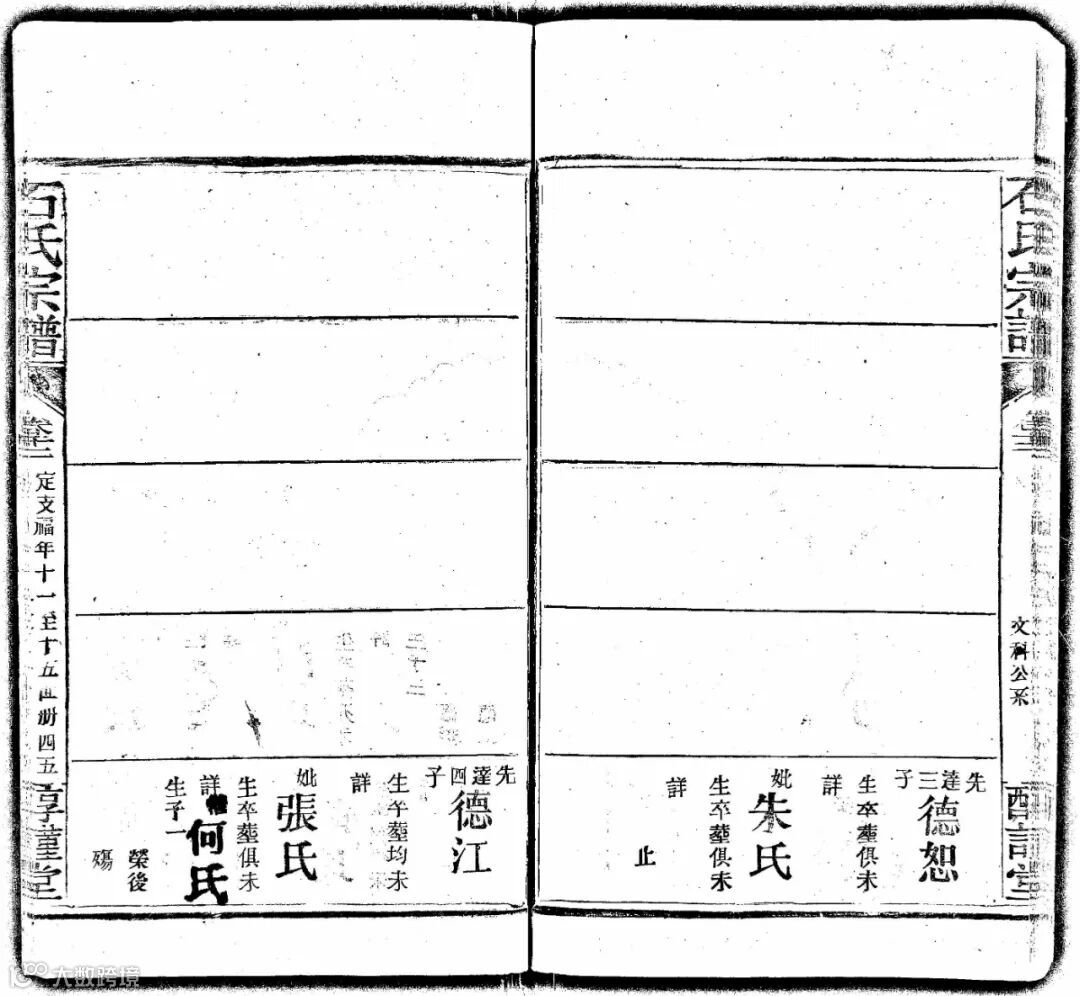 石氏宗譜
文科公系
先達三子
德恕
生卒塟俱未
詳
妣
朱氏
生卒塟俱未
詳
止
先達四子
德江
生卒塟均未
詳
妣
張氏
生卒塟俱未
詳
何氏
生子一
榮後
殤
石氏宗譜
定支福年十一至十五世册四五
大数跨境